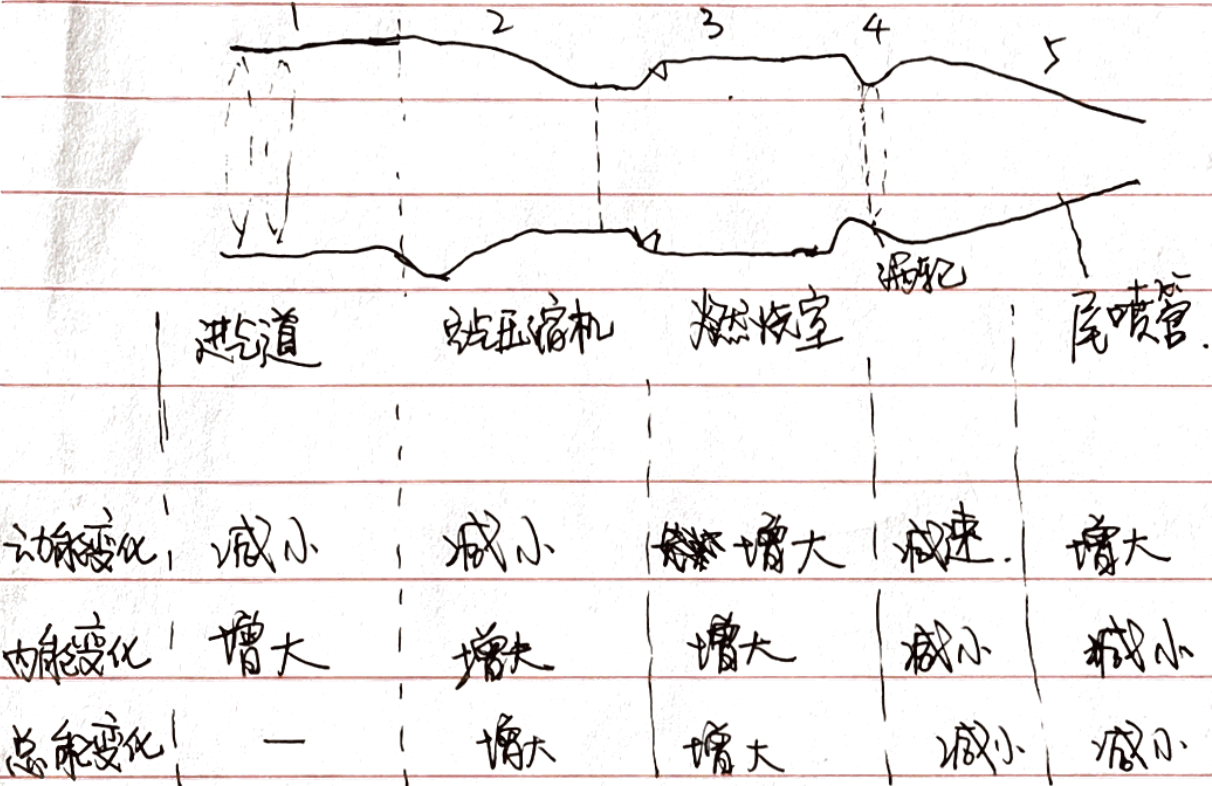 1 2 3 4 5
涡轮
进气道 空气压缩机 燃烧室 尾喷管.
动能变化 减小 减小 增大 减速. 增大
内能变化 增大 增大 增大 减小 减小
总能变化 — 增大 增大 减小 减小